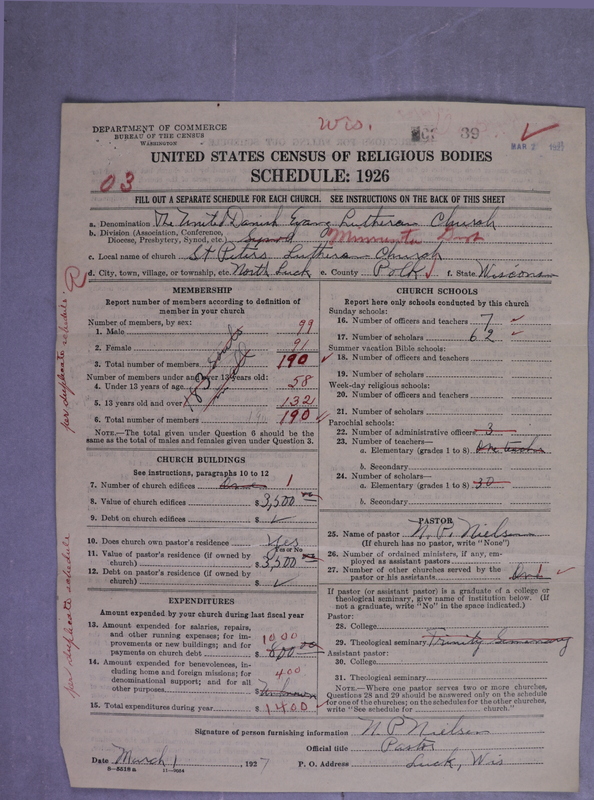 Wis.
39
DEPARTMENT OF COMMERCE
BUREAU OF THE CENSUS
WASHINGTON
MAR 2
UNITED STATES CENSUS OF RELIGIOUS BODIES
SCHEDULE: 1926
03
FILL OUT A SEPARATE SCHEDULE FOR EACH CHURCH. SEE INSTRUCTIONS ON THE BACK OF THIS SHEET
a. Denomination The United Danish Evang Lutheran Church
b. Division (Association, Conference, Diocese, Presbytery, Synod, etc.) Synod Minnesota Dist
c. Local name of church St Peters Lutheran Church
d. City, town, village, or township, etc. North Luck e. County Polk f. State Wisconsin
MEMBERSHIP
Report number of members according to definition of
member in your church
Number of members, by sex:
1. Male 99
2. Female 91
3. Total number of members 190
Number of members under and over 13 years old:
4. Under 13 years of age 58
5. 13 years old and over 132
6. Total number of members 190
NOTE.—The total given under Question 6 should be the
same as the total of males and females given under Question 3.
CHURCH BUILDINGS
See instructions, paragraphs 10 to 12
7. Number of church edifices One 1
8. Value of church edifices $3,500
9. Debt on church edifices $
10. Does church own pastor's residence? Yes
Yes or No
11. Value of pastor's residence (if owned by
church) $3,500
12. Debt on pastor's residence (if owned by
church) $
EXPENDITURES
Amount expended by your church during last fiscal year
13. Amount expended for salaries, repairs,
and other running expenses; for im-
provements or new buildings; and for
payments on church debt 1000 $800
14. Amount expended for benevolences, in-
cluding home and foreign missions; for
denominational support; and for all
other purposes 400 $Unknown
15. Total expenditures during year $1400
CHURCH SCHOOLS
Report here only schools conducted by this church
Sunday schools:
16. Number of officers and teachers 7
17. Number of scholars 62
Summer vacation Bible schools:
18. Number of officers and teachers
19. Number of scholars
Week-day religious schools:
20. Number of officers and teachers
21. Number of scholars
Parochial schools:
22. Number of administrative officers 3
23. Number of teachers—
a. Elementary (grades 1 to 8) One teacher
b. Secondary
24. Number of scholars—
a. Elementary (grades 1 to 8) 30
b. Secondary
PASTOR
25. Name of pastor N. P. Nielsen
(If church has no pastor, write "None")
26. Number of ordained ministers, if any, em-
ployed as assistant pastors
27. Number of other churches served by the
pastor or his assistants One 1
If pastor (or assistant pastor) is a graduate of a college or
theological seminary, give name of institution below. (If
not a graduate, write "No" in the space indicated.)
Pastor:
28. College
29. Theological seminary Trinity Seminary
Assistant pastor:
30. College
31. Theological seminary
NOTE.—Where one pastor serves two or more churches,
Questions 28 and 29 should be answered only on the schedule
for one of the churches; on the schedules for the other churches,
write "See schedule for church."
Signature of person furnishing information N. P. Nielsen
Official title Pastor
Date March 1, 1927 P. O. Address Luck, Wis
8-5518a 11-9084
per duplicate schedule
per duplicate schedule